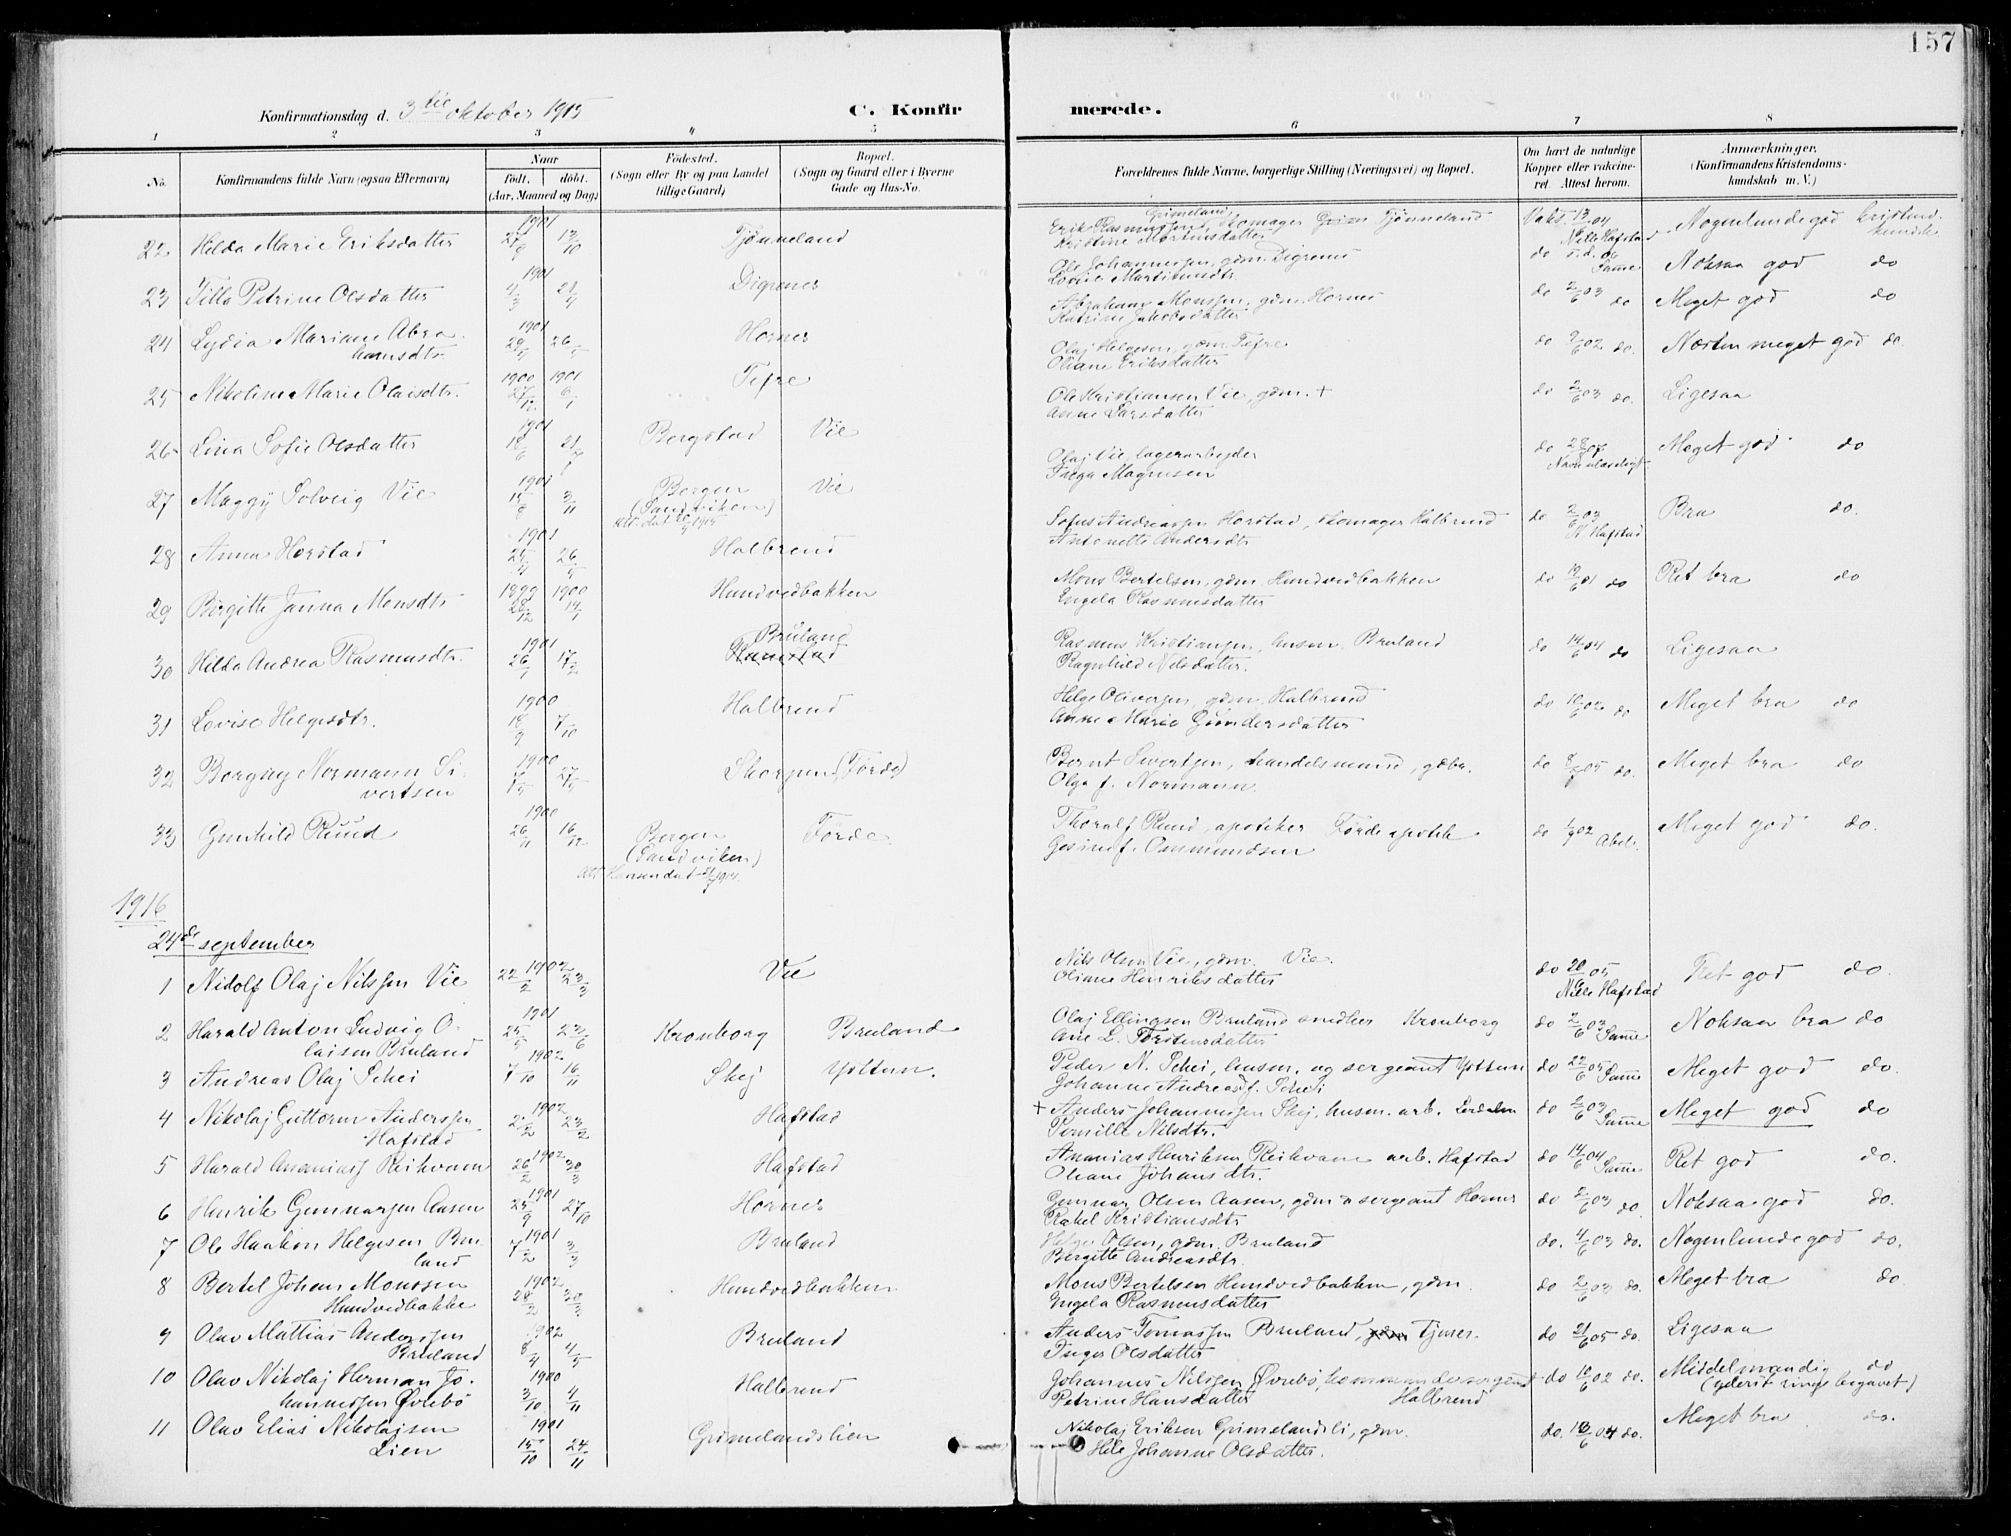 157
Konfirmationsdag d. 3die oktober 1915
C. Konfirmerede.
1 2 3 4 5 6 7 8
No. Konfirmandens fulde Navn (ogsaa Efternavn) Naar født, døbt. (Aar, Maaned og Dag) Fødested. (Sogn eller By og paa Landet tillige Gaard) Bopæl. (Sogn og Gaard eller i Byerne Gade og Hus-No. Forældrenes fulde Navne, borgerlige Stilling (Næringsvei) og Bopæl. Om havt de naturlige Kopper eller vaksineret. Attest herom. Anmærkninger. (Konfirmandens Kristendomskundskab m. V.)
22 Hilda Marie Eriksdatter 1901 27/9 13/10 Tjønneland Erik Rasmussen Grimeland, skomager Tjønneland Vaks. 04 Nogenlunde god kristend. kundsk.
Kristine Mortensdatter Nille Hafstad
23 Tilla Petrine Olsdatter 1901 4/3 21/4 Digrenes Ole Johannessen, gdm. Digrenes do Samme Noksaa god do
Lovise Martinusdtr.
24 Lydia Mariane Abrahamsdtr. 1901 29/4 26/5 Hornes Abraham Monssen, gdm. Hornes do 2/6 03 do Meget god do
Katrine Jakobsdatter
25 Nikoline Marie Olaisdtr. 1900 27/12 1901 6/1 Tefre Olaj Helgesen, gdm. Tefre do 2/6 02 do. Næsten meget god do.
Oliane Eriksdatter
26 Lina Sofie Olsdatter 1901 18/6 21/7 Bergstad Vie Ole Kristiansen Vie, gdm. + do 2/6 03 do. Ligesaa
Anne Larsdatter
27 Maggy Solveig Vie 1901 15/8 3/11 Bergen (Sandviken) Vie Olaj Vie, lagerarbejder do 28/ 07 Meget god do
Magnusen
28 Anna Horstad 1901 25/4 26/5 Halbrend Sofus Andreassen Horstad, skomager Halbrend do 2/6 03 Hafstad Bra do.
Antonette Andersdtr.
29 Birgitte Janna Monsdtr. 1899 28/12 1900 14/1 Hundvedbakken Mons Bertelsen, gdm. Hundvedbakken do 19/6 01 do Ret bra do
Engela Rasmusdatter
30 Hilda Andrea Rasmusdtr. 1901 26/1 17/2 Bruland Rasmus Kristiansen, husm. Bruland do 14/6 04 do Ligesaa
Ragnhild Nilsdatter.
31 Lovise Helgesdtr. 1900 18/9 7/10 Halbrend Helge Oliversen, gdm. Halbrend do 10/6 02 do Meget bra do
Anne Marie Gundersdatter
32 Borgny Normann Sivertsen 1900 7/5 27/5 Skorpen (Førde) Bernt Sivertsen, handelsmand, gdbr. do 8/ 05 do. Meget bra do
Olga f. Normann.
33 Gunhild Ruud 1900 26/11 16/12 Bergen (Sandviken) Førde. Thoralf Ruud, apoteker Førde apotek do 1/7 02 Abel. Meget god do.
Gesine f. Osmundsen
1916
24de september
1 Nidolf Olaj Nilssen Vie 1902 22/2 23/3 Vie Nils Olsen Vie, gdm. Vie. do 20/6 05 Nille Hafstad Ret god do.
Oliane Henriksdatter
2 Harald Anton Ludvig Olaisen Bruland 1901 25/5 23/6 Kronborg Bruland Olaj Ellingsen Bruland snedker Kronborg do 2/6 03 Samme Noksaa bra do
Ane L. Torstensdatter
3 Andreas Olaj Schei 1902 7/10 16/11 Skej Ysttun. Peder N. Schei, husm. og sergeant Ysttun do 22/6 05 Samme Meget god do.
Johanne Andrea f. Schei
4 Nikolaj Guttorm Anderssen Hafstad 1902 2/2 23/2 Hafstad + Anders Johannessen Skej, husm. arb. do 2/6 03 Samme Meget god do
Pernille Nilsdtr.
5 Harald Ananiasf Reikvam 1902 26/2 30/3 Hafstad Ananias Henriksen Reikvam arb. Hafstad do 14/6 04 Samme Ret god do.
Oliane Johansdtr.
6 Henrik Gunnarsen Aasen 1901 25/9 27/10 Hornes Gunnar Olsen Aasen, gdm. o sergeant Hornes do 2/6 03 do. Noksaa god do.
Rakel Kristiansdtr.
7 Ole Haakon Helgesen Bruland 1901 7/2 3/3 Bruland Helge Olsen, gdm. Bruland do. 4/6 03 do. Nogenlunde god do.
Birgitte Andreasdtr.
8 Bertel Johan Monssen Hundvedbakke 1902 28/2 30/3 Hundvedbakken Mons Bertelsen Hundvedbakken, gdm. do 2/6 03 do. Meget bra do
Engela Rasmusdatter
9 Olav Mattias Anderssen Bruland 1902 8/4 4/5 Bruland Anders Tomassen Bruland, gdm tjener. do 21/6 05 do. Ligesaa
Inger Olsdatter
10 Olav Nikolaj Herman Johannessen Øvrebø 1900 3/10 4/11 Halbrend Johannes Nilssen Øvrebø, kommandersergeant do 10/6 02 do. Middelmaadig do
Petrine Hansdatter Halbrend (yderst ringe begavet)
11 Olav Elias Nikolajsen Lien 1901 15/10 24/11 Grimelandslien Nikolaj Eriksen Grimelandsli, gdm. do. 04 do. Meget bra do.
Hele Johanne Olsdatter.